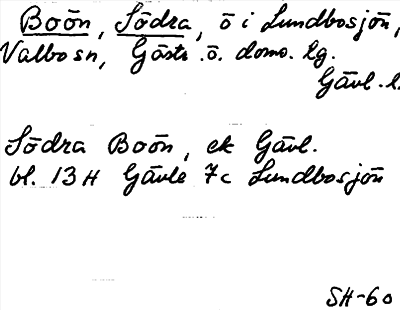 Boön, Södra, ö i Lundbosjön,
Valbo sn, Gästr. ö. doms. lg.
Gävl. l.
Södra Boön, ek Gävl.
bl. 13 H Gävle 7c Lundbosjön
SH-60